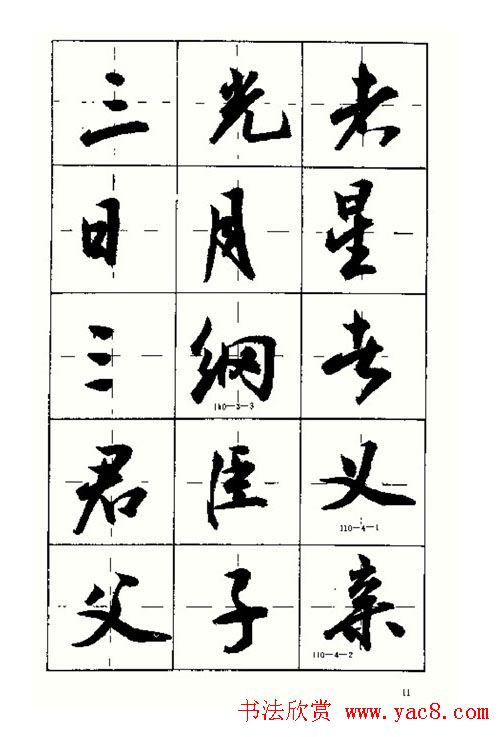 三光者
日月星
三纲者
110-3-3
君臣义
110-4-1
父子亲
110-4-2
11
书法欣赏 www.yac8.com